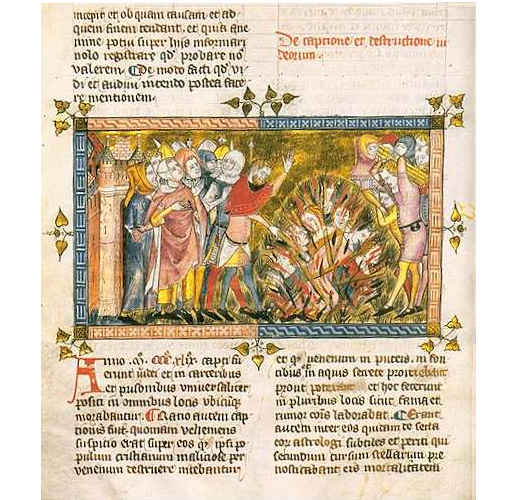 incepit et ob quam causam et ad
quem finem tendant. et qua a
nimo potui super hiis informari
nolo registrare qd probare nō
valerem. De modo facti qd vi
di et audiui intendo postea face
re mentionem.
De captione et destructione iu
deorum.
Anno .m. ccc. xlix. capti fu
erunt iudei et in carceribus
et prisonibus vniuersaliter
positi in omnibus locis vbicūq
morabantur. Ratio autem cap
tionis fuit quoniam vehemens
suspitio erat super eos q ipsi po
pulum cristianum maliciose per
venenum destruere nitebantur
et q venenum in puteis. in fon
tibus in aquis secrete proiciebant
prout poterant et hoc fecerunt
in pluribus locis sicut fama et
rumor cois laborabat. Erant
autem inter eos quidam de secta
eor astrologi subtiles et periti qui
secundum cursum stellarum pre
nosticabant eis mortalitatem